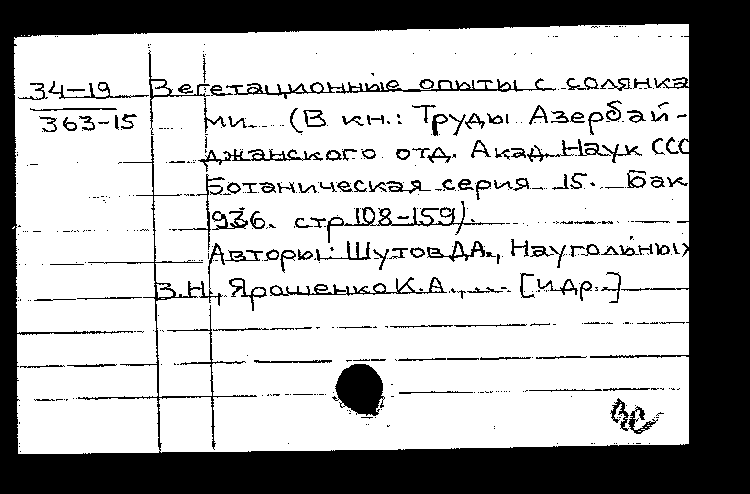 34-19 Вегетационные опыты с солянка
363-15 ми. (В кн.: Труды Азербай-
джанского отд. Акад. Наук ССС
Ботаническая серия 15. Бак
1936. стр. 108-159).
Авторы: Шутов Д.А., Наугольных
В.Н., Ярошенко К.А., ... [и др..]